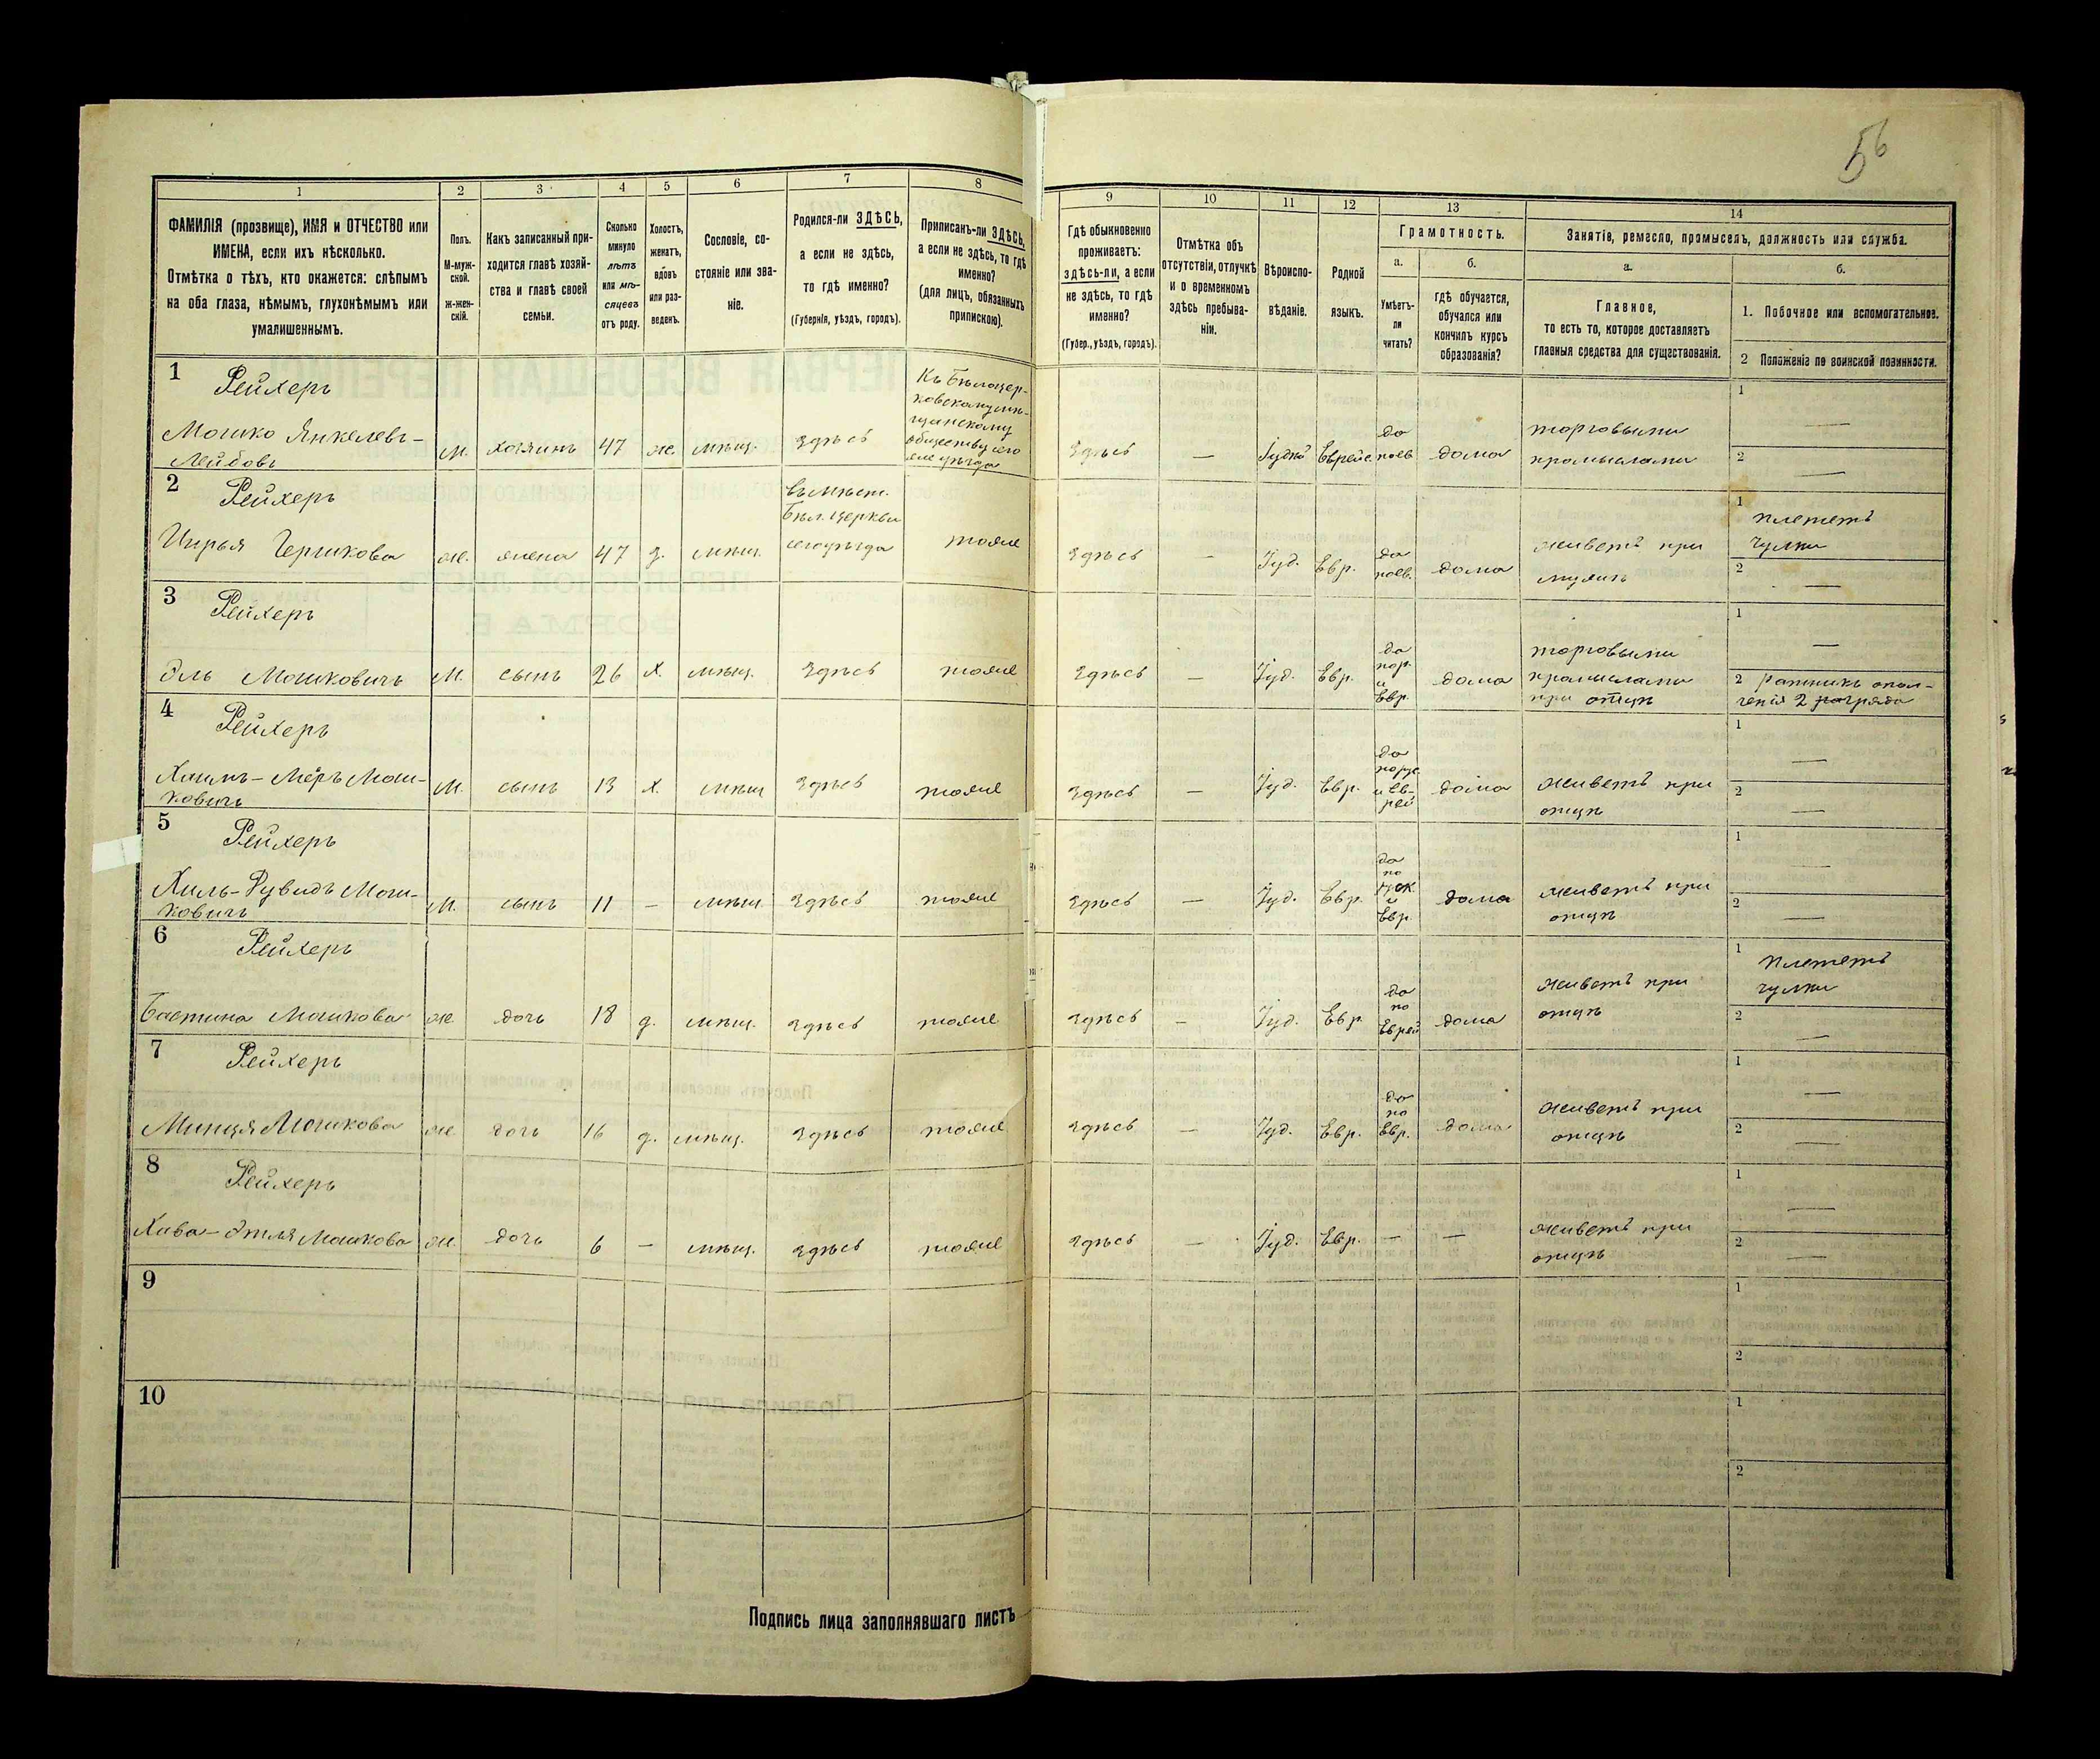 56
1 2 3 4 5 6 7 8 9 10 11 12 13 14
ФАМИЛІЯ (прозвище), ИМЯ и ОТЧЕСТВО или
ИМЕНА, если ихъ нѣсколько.
Отмѣтка о тѣхъ, кто окажется: слѣпымъ
на оба глаза, нѣмымъ, глухонѣмымъ или
умалишеннымъ.
Полъ.
М-муж-
ской.
ж-жен-
скій.
Какъ записанный при-
ходится главѣ хозяй-
ства и главѣ своей
семьи.
Сколько
минуло
лѣтъ
или мѣ-
сяцевъ
отъ роду.
Холостъ,
женатъ,
вдовъ
или раз-
веденъ.
Сословіе, со-
стояніе или зва-
ніе.
Родился-ли ЗДѢСЬ,
а если не здѣсь,
то гдѣ именно?
(Губернія, уѣздъ, городъ).
Приписанъ-ли ЗДѢСЬ,
а если не здѣсь, то гдѣ
именно?
(для лицъ, обязанныхъ
припискою).
Гдѣ обыкновенно
проживаетъ:
здѣсь-ли, а если
не здѣсь, то гдѣ
именно?
(Губер., уѣздъ, городъ).
Отмѣтка объ
отсутствіи, отлучкѣ
и о временномъ
здѣсь пребыва-
ніи.
Вѣроиспо-
вѣданіе.
Родной
языкъ.
Грамотность.
а.
Умѣетъ-
ли
читать?
б.
гдѣ обучается,
обучался или
кончилъ курсъ
образованія?
Занятіе, ремесло, промыселъ, должность или служба.
а.
Главное,
то есть то, которое доставляетъ
главныя средства для существованія.
б.
1. Побочное или вспомогательное.
2 Положеніе по воинской повинности.
1 Рейхеръ
Мошко Янкелевъ-
Лейбовъ
м. хозяинъ 47 же мѣщ. здѣсь
Къ Бѣлоцер-
ковскому мѣ-
щанскому
обществу сего
же уѣзда
здѣсь — Іудей Еврейс.
да
поев.
дома
торговыми
промыслами
1 —
2 —
2 Рейхеръ
Цирья Гершкова
же. жена 47 з. мѣщ.
въ мѣст.
Бѣл. Церкви
сего уѣзда
тоже здѣсь — Іуд. Евр.
да
поев.
дома
живетъ при
мужѣ
1 плететъ
чулки
2 —
3 Рейхеръ
Эль Мошковичъ
м. сынъ 26 х. мѣщ. здѣсь тоже здѣсь — Іуд. Евр.
да
пор.
и
Евр.
дома
торговыми
промыслами
при отцѣ
1 —
2 ратникъ опол-
ченія 2 разряда
4 Рейхеръ
Хаимъ-Меръ Мош-
ковичъ
м. сынъ 13 х. мѣщ здѣсь тоже здѣсь — Іуд. Евр.
да
порус
и Ев-
рей
дома
живетъ при
отцѣ
1 —
2 —
5 Рейхеръ
Хиль-Рувидъ Мош-
ковичъ
м. сынъ 11 — мѣщ здѣсь тоже здѣсь — Іуд. Евр.
да
по
рус
и
Евр.
дома
живетъ при
отцѣ
1 —
2 —
6 Рейхеръ
Бастина Мошкова
же дочь 18 д. мѣщ. здѣсь тоже здѣсь — Іуд. Евр
да
по
Еврей
дома
живетъ при
отцѣ
1 плететъ
чулки
2 —
7 Рейхеръ
Минця Мошкова
же дочь 16 д. мѣщ. здѣсь тоже здѣсь — Іуд. Евр.
да
по
Евр.
дома
живетъ при
отцѣ
1 —
2 —
8 Рейхеръ
Хава-Этля Мошкова
же. дочь 6 — мѣщ. здѣсь тоже здѣсь — Іуд. Евр. — —
живетъ при
отцѣ
1 —
2 —
9
1
2
10
1
2
Подпись лица заполнявшаго листъ